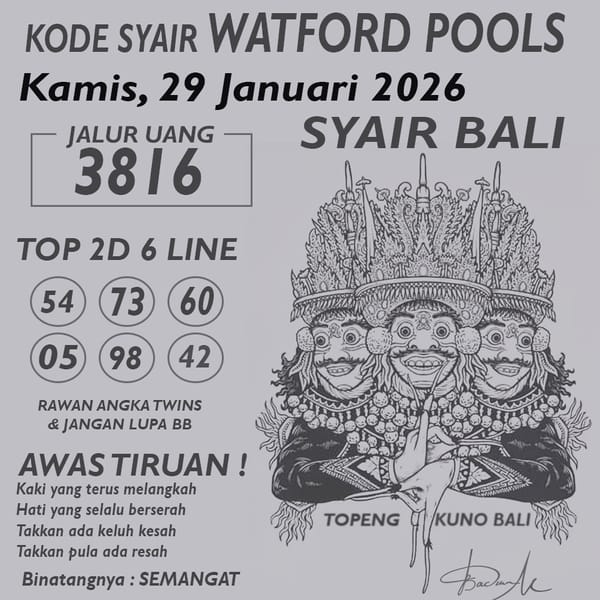 KODE SYAIR WATFORD POOLS
Kamis, 29 Januari 2026
JALUR UANG
3816
SYAIR BALI
TOP 2D 6 LINE
54 73 60
05 98 42
RAWAN ANGKA TWINS
& JANGAN LUPA BB
AWAS TIRUAN !
Kaki yang terus melangkah
Hati yang selalu berserah
Takkan ada keluh kesah
Takkan pula ada resah
Binatangnya : SEMANGAT
TOPENG KUNO BALI